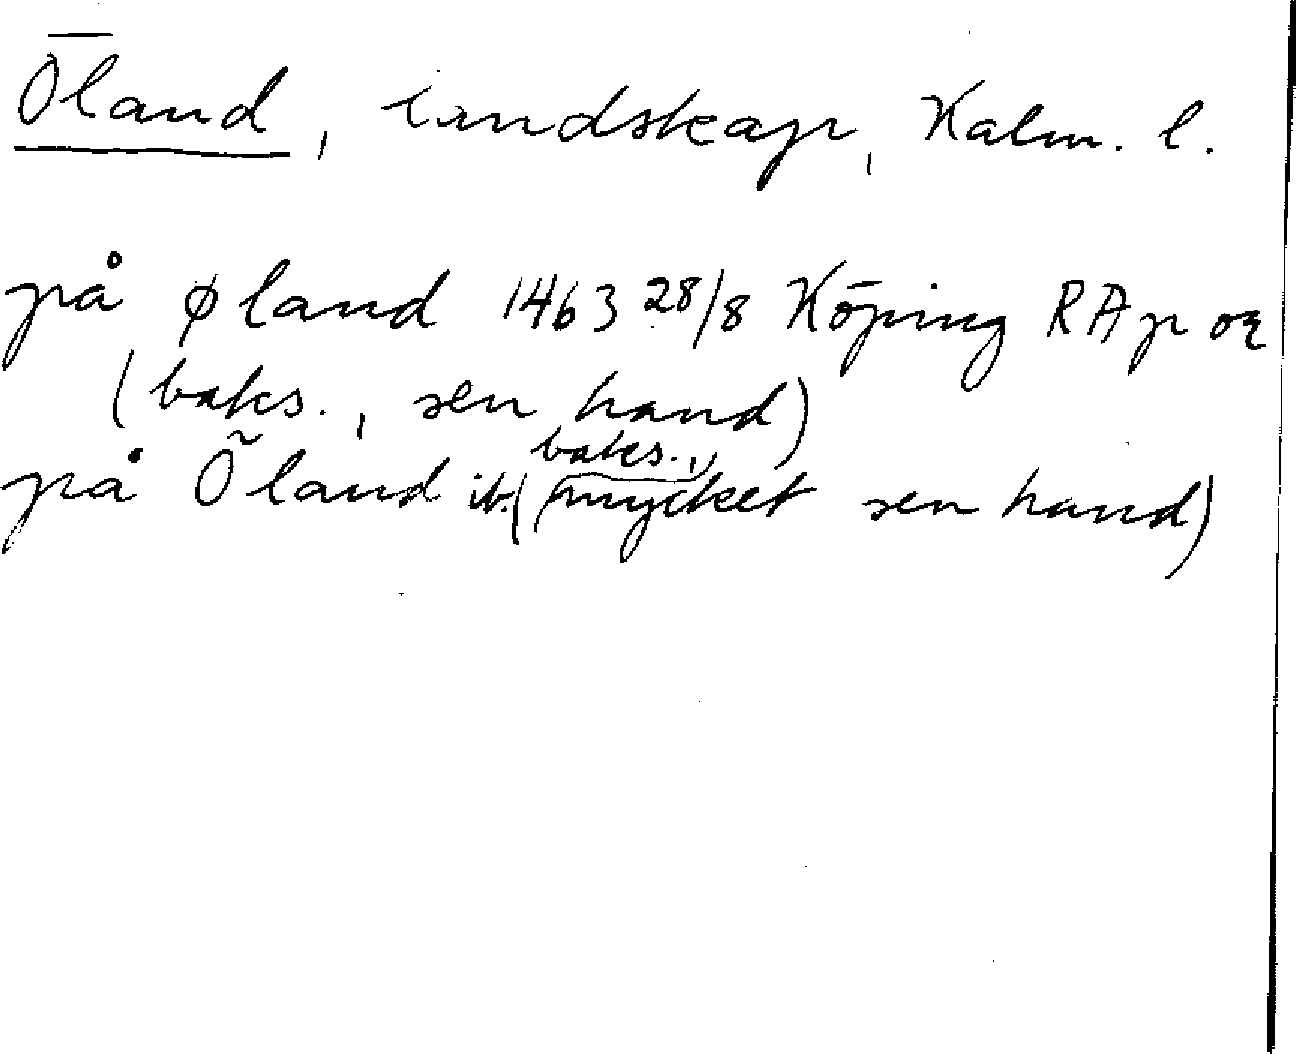 Öland, landskap, Kalm. l.
på øland 1463 28/8 Köping RAp or
(baks., sen hand)
på Õland ib. (baks., mycket sen hand)